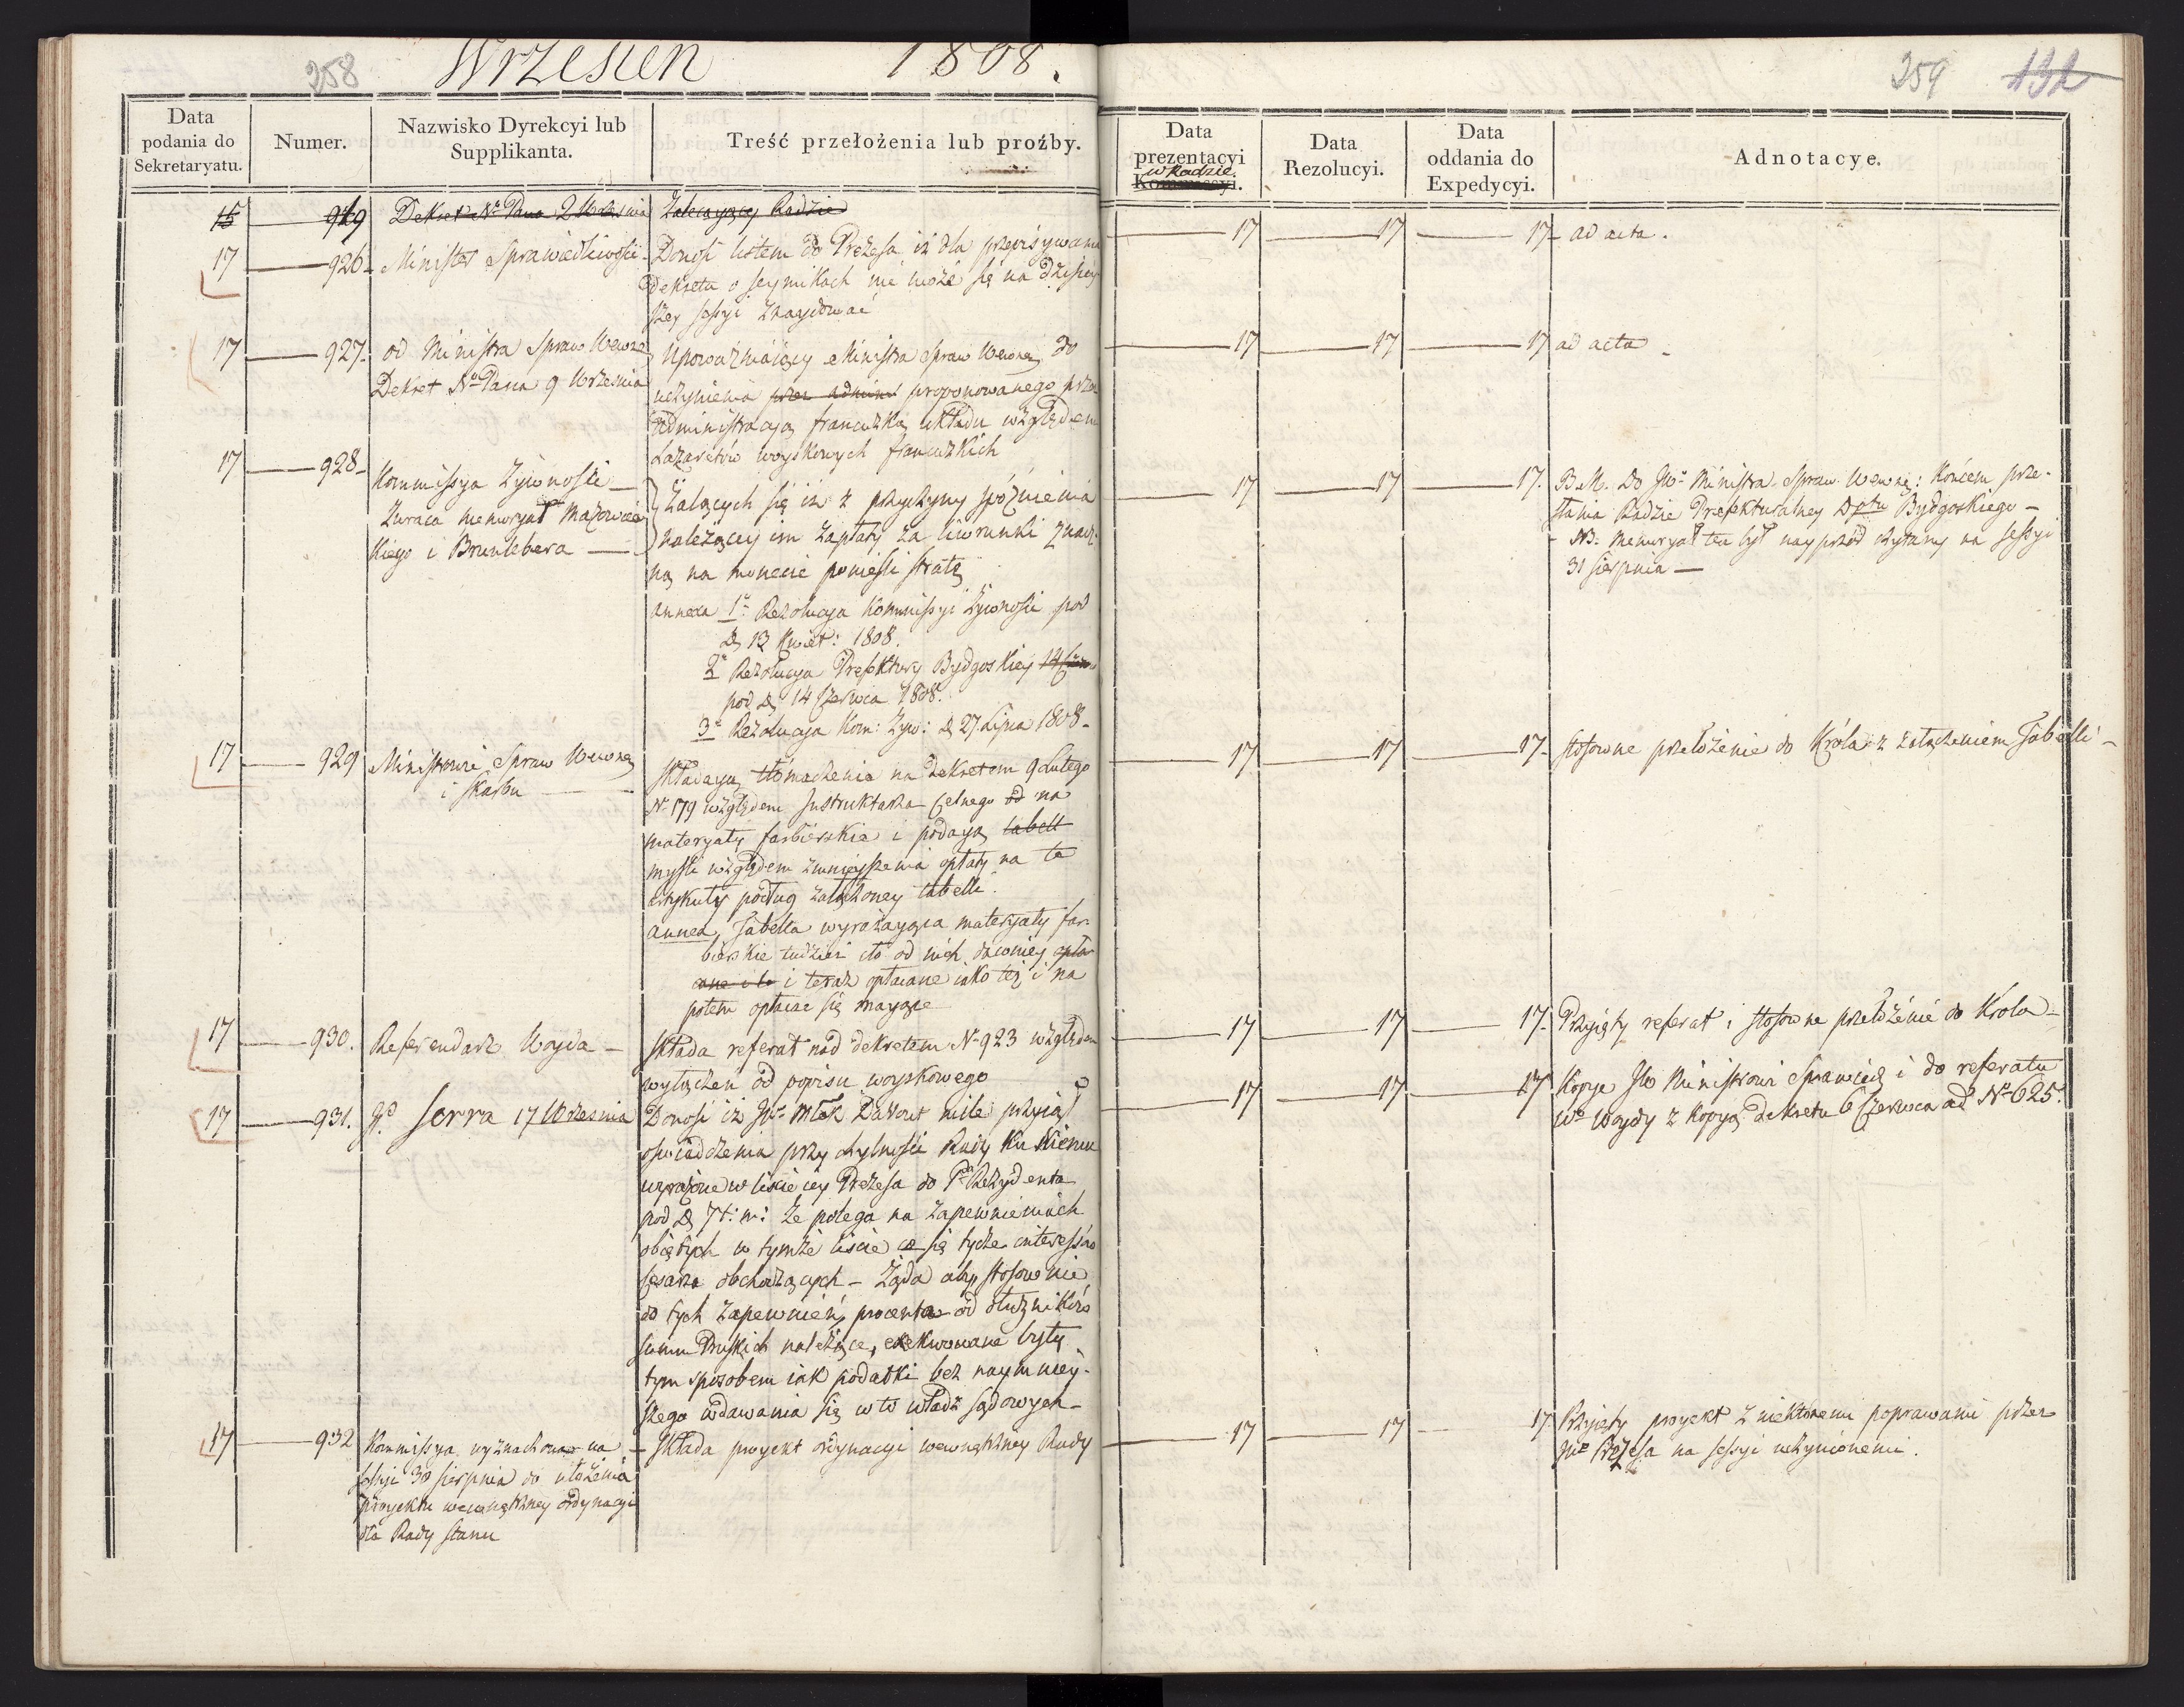 258
Wrzesień 1808.
259 132
Data podania do Sekretaryatu.
Numer.
Nazwisko Dyrekcyi lub Supplikanta.
Treść przełożenia lub proźby.
Data prezentacyi w Radzie.
Data Rezolucyi.
Data oddania do Expedycyi.
Adnotacye.
15 919 Dekret Nº Pana 2 Września Zalecaiący Radzie
17 926 Minister Sprawiedliwości
Donosi listem do Prezesa iż dla przepisywania
Dekretu o seymikach nie może się na dzisiey
szey sessyi znaydować
17 17 17 ad acta.
17 927. od Ministra Spraw Wewnę
Dekret Nº Pana 9 Września
Upoważniaiący Ministra Spraw Wewnę do
uczynienia przez admini proponowanego przez
administracyą francuzką układu względem
Lazaretów woyskowych francuzkich
17 17 17 ad acta
17 928 Kommissya Żywności
Zwraca memoryał Mazowiec
kiego i Brunlebera
Żalących się iż z przyczyny spóźnienia
należącey im zapłaty za liwerunki znacz
ną na monecie ponieśli stratę
annexa 1º Rezolucya Kommissyi Żywności pod
D. 13 Kwiet: 1808.
2º Rezolucya Prefektury Bydgoskiey 14 Czerw
pod D. 14 Czerwca 1808.
3º Rezolucya Kom: Żyw: D. 27 Lipca 1808
17 17 17. B.M. Do JWº Ministra Spraw Wewnę: końcem prze-
słania Radzie Prefekturalney Dptu Bydgoskiego
NB. Memoryał ten był nayprzód czytany na sessyi
31 Sierpnia
17 929 Ministrowie Spraw Wewnę
i Skarbu
Składaią tłómaczenia na dekretem 9 Lutego
Nº 179 względem Instruktarza Celnego od na
materyały farbierskie i podaią tabell
myśli względem zmnieyszenia opłaty na te
artykuły podług załączoney tabelli.
annexa, Tabella wyrażaiąca materyały far-
bierskie tudzież cło od nich dawniey opła
cane i te i teraz opłacane iako też i na
potem opłacać się maiące
17 17 17 stosowne przełożenie do Króla z załączeniem Tabelli
17 930. Referendarz Woyda
Składa referat nad dekretem Nº 923 względem
wyłączeń od popisu woyskowego
17 17 17. Przyięty referat i stosowne przełożenie do Króla
17 931. JP. Serra 17 Września
Donosi iż JWº Młek Davout mile przyiął
oświadczenia przychylności Rady ku Niemu
wyrażone w liście iey Prezesa do Pª Rezydenta
pod D. 7 t: m: że polega na zapewnieniach
obiętych w tymże liście co się tycze interessów
Cesarza obchodzących – Żąda aby stosownie
do tych zapewnień, procenta od dłużników
summ Pruskich należące, exekwowane były
tym sposobem iak podatki bez naymniey-
szego wdawania się w to władz sądowych
17 17 17 Kopye JW Ministrowi Sprawied. i do referatu
Wº Woydy z kopyą Dekretu 6 Czerwca ad Nº 625.
17 932 Kommissya wyznaczona na
sessyi 30 Sierpnia do ułożenia
proyektu wewnętrzney ordynacyi
dla Rady Stanu
Składa proyekt ordynacyi wewnętrzney Rady
17 17 17 Przyięty proyekt z niektóremi poprawami przez
JWº Prezesa na sessyi uczynionemi.